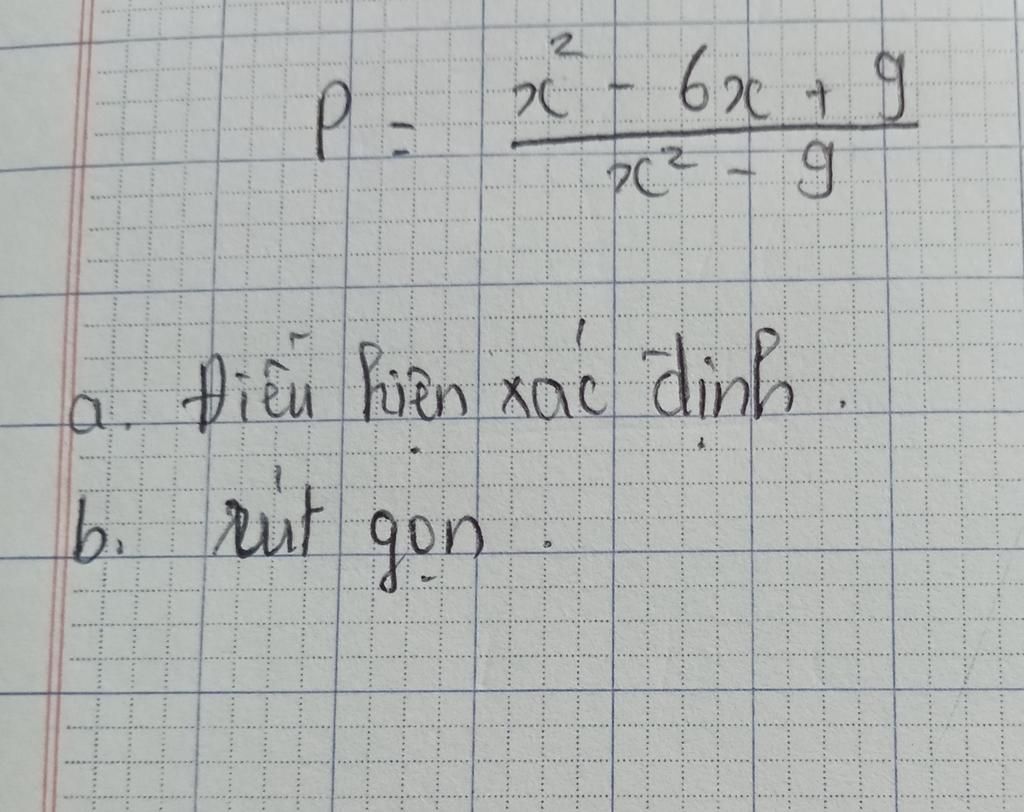 P = (x² - 6x + 9) / (x² - 9)
a. Điều kiện xác định.
b. rút gọn.